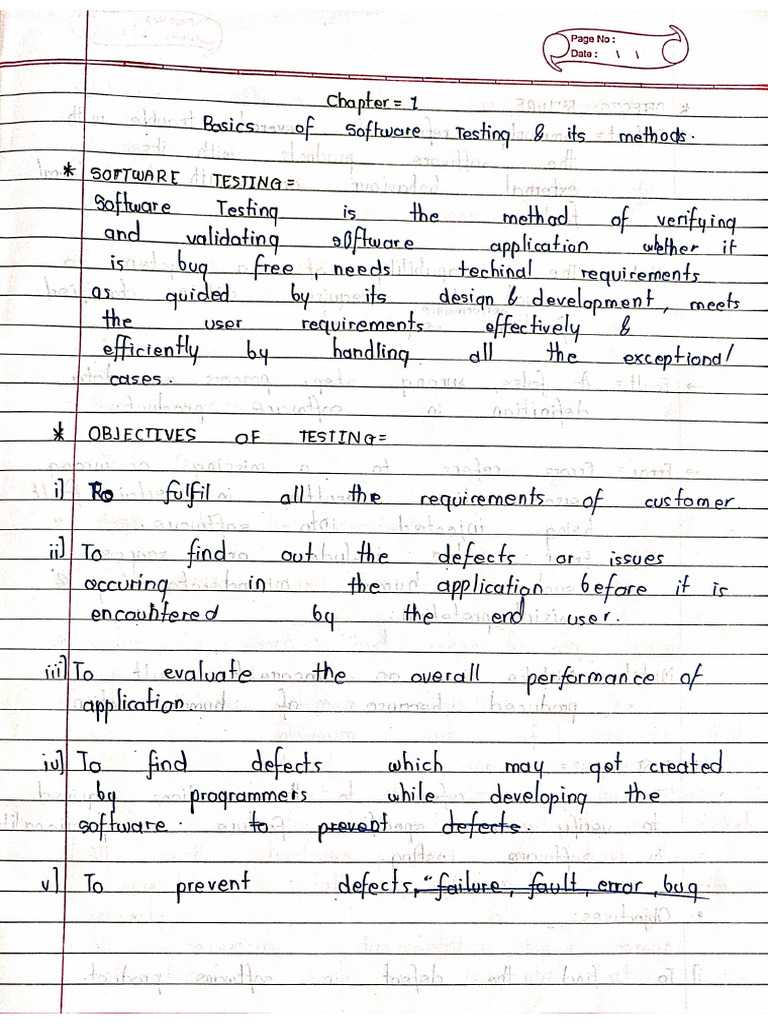 Page No :
Date : \ \
Chapter = 1
Basics of Software Testing & its methods.
* SOFTWARE TESTING=
Software Testing is the method of verifying
and validating software application whether it
is bug free, needs techinal requirements
as guided by its design & development, meets
the user requirements effectively &
efficiently by handling all the exceptional
cases.
* OBJECTIVES OF TESTING=
i] To fulfil all the requirements of customer.
ii] To find out the defects or issues
occuring in the application before it is
encountered by the end user.
iii] To evaluate the overall performance of
application.
iv] To find defects which may get created
by programmers while developing the
software. to prevent defects.
v] To prevent defects, "failure, fault, error, bug